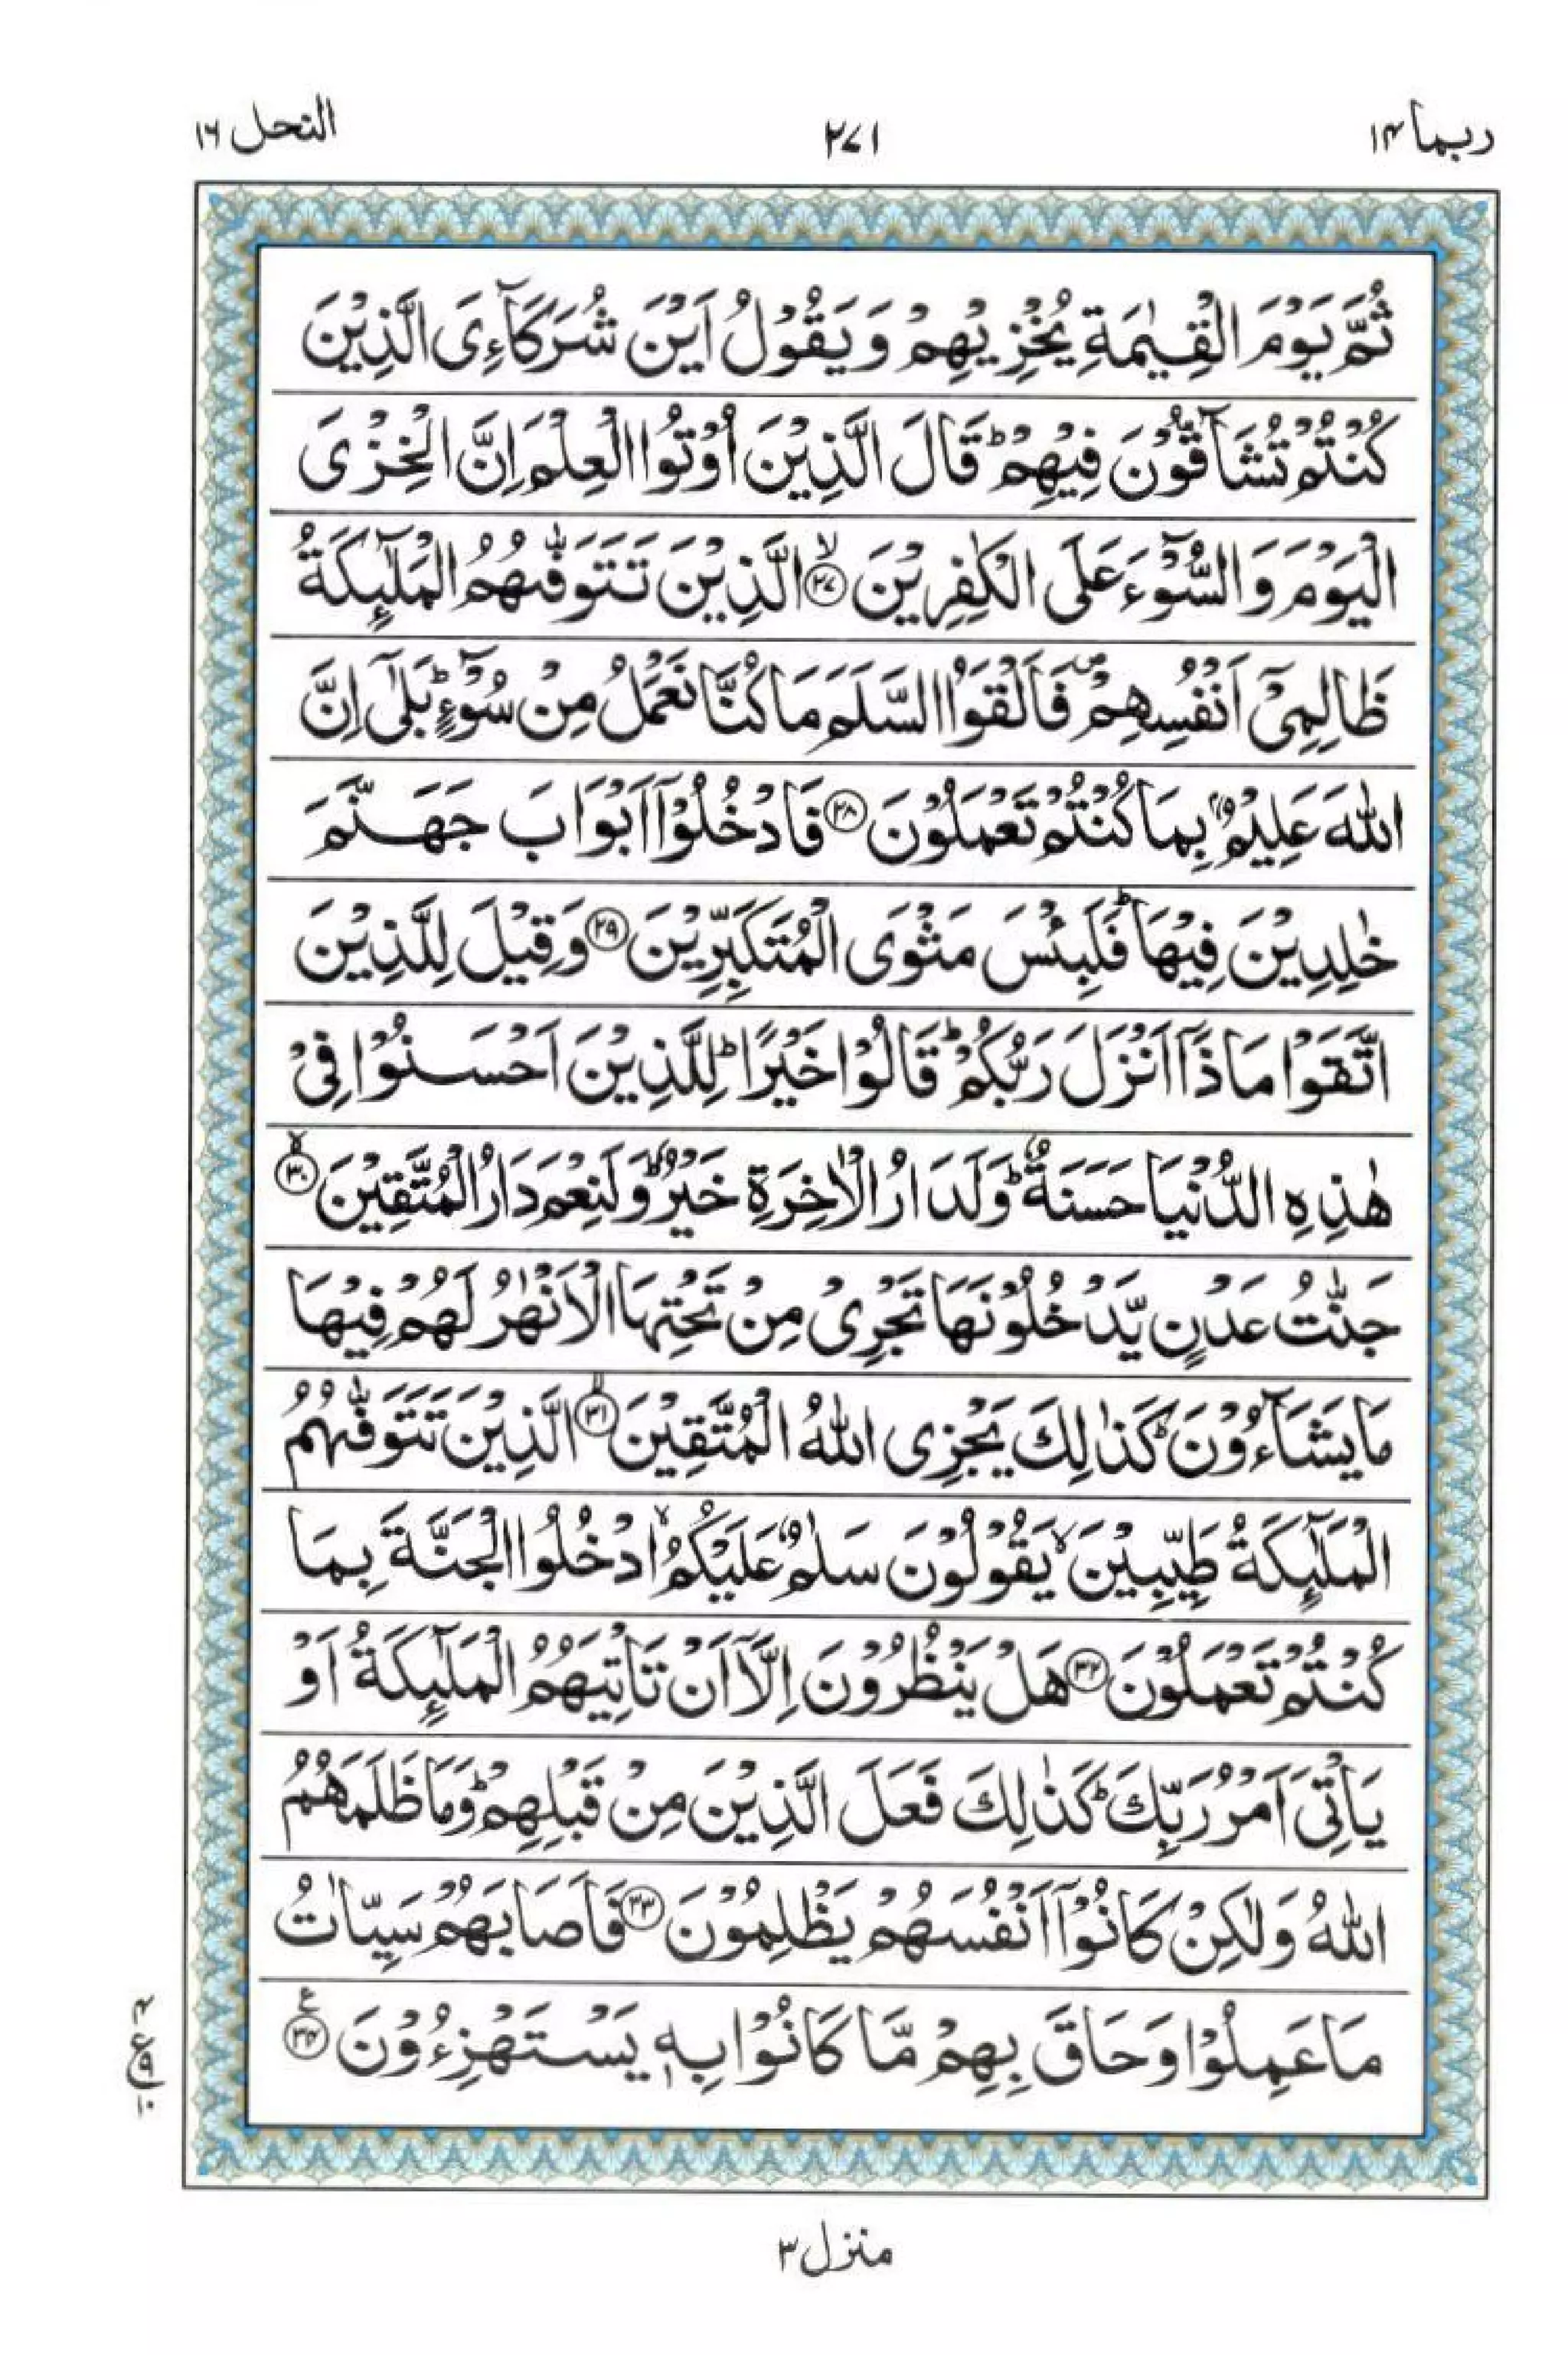 ربما ١۴
٢٧١
النحل ١٦
ثُمَّ يَوْمَ الْقِيٰمَةِ يُخْزِيْهِمْ وَيَقُوْلُ اَيْنَ شُرَكَآءِىَ الَّذِيْنَ
كُنْتُمْ تُشَآقُّوْنَ فِيْهِمْ ؕ قَالَ الَّذِيْنَ اُوْتُوا الْعِلْمَ اِنَّ الْخِزْىَ
الْيَوْمَ وَالسُّوْٓءَ عَلَى الْكٰفِرِيْنَ ۙ﴿۲۷﴾ الَّذِيْنَ تَتَوَفّٰٮهُمُ الْمَلٰٓٮِٕكَةُ
ظَالِمِىْٓ اَنْفُسِهِمْ ۪ فَاَلْقَوُا السَّلَمَ مَا كُنَّا نَعْمَلُ مِنْ سُوْٓءٍ ؕ بَلٰٓى اِنَّ
اللّٰهَ عَلِيْمٌۢ بِمَا كُنْتُمْ تَعْمَلُوْنَ ﴿۲۸﴾ فَادْخُلُوْۤا اَبْوَابَ جَهَنَّمَ
خٰلِدِيْنَ فِيْهَا ؕ فَلَبِئْسَ مَثْوَى الْمُتَكَبِّرِيْنَ ﴿۲۹﴾ وَقِيْلَ لِلَّذِيْنَ
اتَّقَوْا مَاذَاۤ اَنْزَلَ رَبُّكُمْ ؕ قَالُوْا خَيْرًا ؕ لِلَّذِيْنَ اَحْسَنُوْا فِىْ
هٰذِهِ الدُّنْيَا حَسَنَةٌ ؕ وَلَدَارُ الْاٰخِرَةِ خَيْرٌ ؕ وَلَنِعْمَ دَارُ الْمُتَّقِيْنَ ۙ﴿۳۰﴾
جَنّٰتُ عَدْنٍ يَّدْخُلُوْنَهَا تَجْرِىْ مِنْ تَحْتِهَا الْاَنْهٰرُ لَهُمْ فِيْهَا
مَا يَشَآءُوْنَ ؕ كَذٰلِكَ يَجْزِى اللّٰهُ الْمُتَّقِيْنَ ۙ﴿۳۱﴾ الَّذِيْنَ تَتَوَفّٰٮهُمُ
الْمَلٰٓٮِٕكَةُ طَيِّبِيْنَ ۙ يَقُوْلُوْنَ سَلٰمٌ عَلَيْكُمُ ۙ ادْخُلُوا الْجَنَّةَ بِمَا
كُنْتُمْ تَعْمَلُوْنَ ﴿۳۲﴾ هَلْ يَنْظُرُوْنَ اِلَّاۤ اَنْ تَاْتِيَهُمُ الْمَلٰٓٮِٕكَةُ اَوْ
يَاْتِىَ اَمْرُ رَبِّكَ ؕ كَذٰلِكَ فَعَلَ الَّذِيْنَ مِنْ قَبْلِهِمْ ؕ وَمَا ظَلَمَهُمُ
اللّٰهُ وَلٰكِنْ كَانُوْۤا اَنْفُسَهُمْ يَظْلِمُوْنَ ﴿۳۳﴾ فَاَصَابَهُمْ سَيِّاٰتُ
مَا عَمِلُوْا وَحَاقَ بِهِمْ مَّا كَانُوْا بِهٖ يَسْتَهْزِءُوْنَ ﴿۳۴﴾ ع
۴
ع
۹
۱۰
منزل ۳